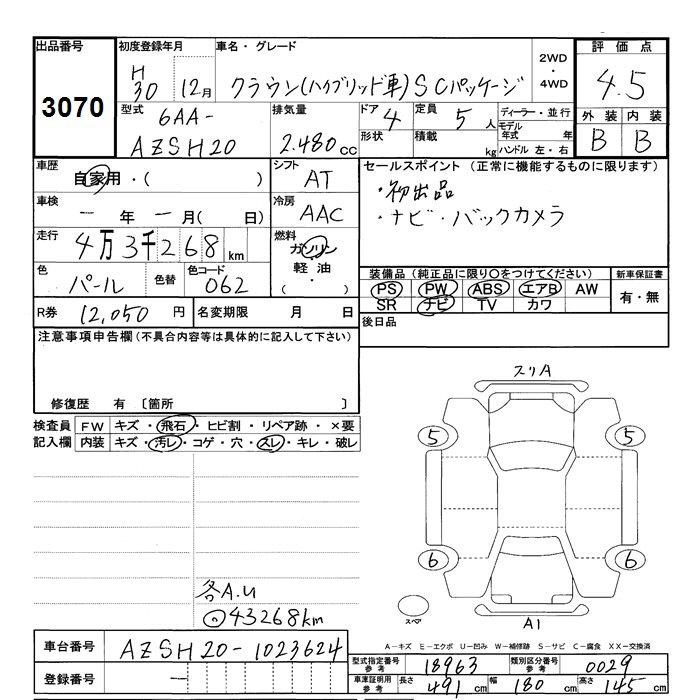 出品番号 初度登録年月 車名・グレード 2WD・4WD 評価点
3070 H30 12月 クラウン(ハイブリッド車)SCパッケージ 4.5
型式 6AA-AZSH20 排気量 2.480cc ドア 4 定員 5人 ディーラー・並行 外装 内装
形状 積載 kg モデル年式 年 B B
ハンドル 左・右
車歴 自家用・( ) シフト AT セールスポイント(正常に機能するものに限ります)
・初出品
車検 ー年ー月( 日) 冷房 AAC ・ナビ・バックカメラ
走行 4万3千268km 燃料 ガソリン
軽油
・
( )
色 パール 色替 色コード 062 装備品(純正品に限り○をつけてください) 新車保証書
PS PW ABS エアB AW 有・無
R券 12,050円 名変期限 月 日 SR ナビ TV カワ
後日品
注意事項申告欄(不具合内容等は具体的に記入して下さい)
修復歴 有 〔箇所 〕
検査員 FW キズ・飛石・ヒビ割・リペア跡・×要
記入欄 内装 キズ・汚レ・コゲ・穴・スレ・キレ・破レ
スリA
5 5
6 6
スペア A1
各A.U
43268km
A-キズ E-エクボ U-凹み W-補修跡 S-サビ C-腐食 XX-交換済
車台番号 AZSH20-1023624
型式指定番号参考 18963 類別区分番号参考 0029
登録番号 ー
車庫証明用参考 長さ 491cm 幅 180cm 高さ 145cm